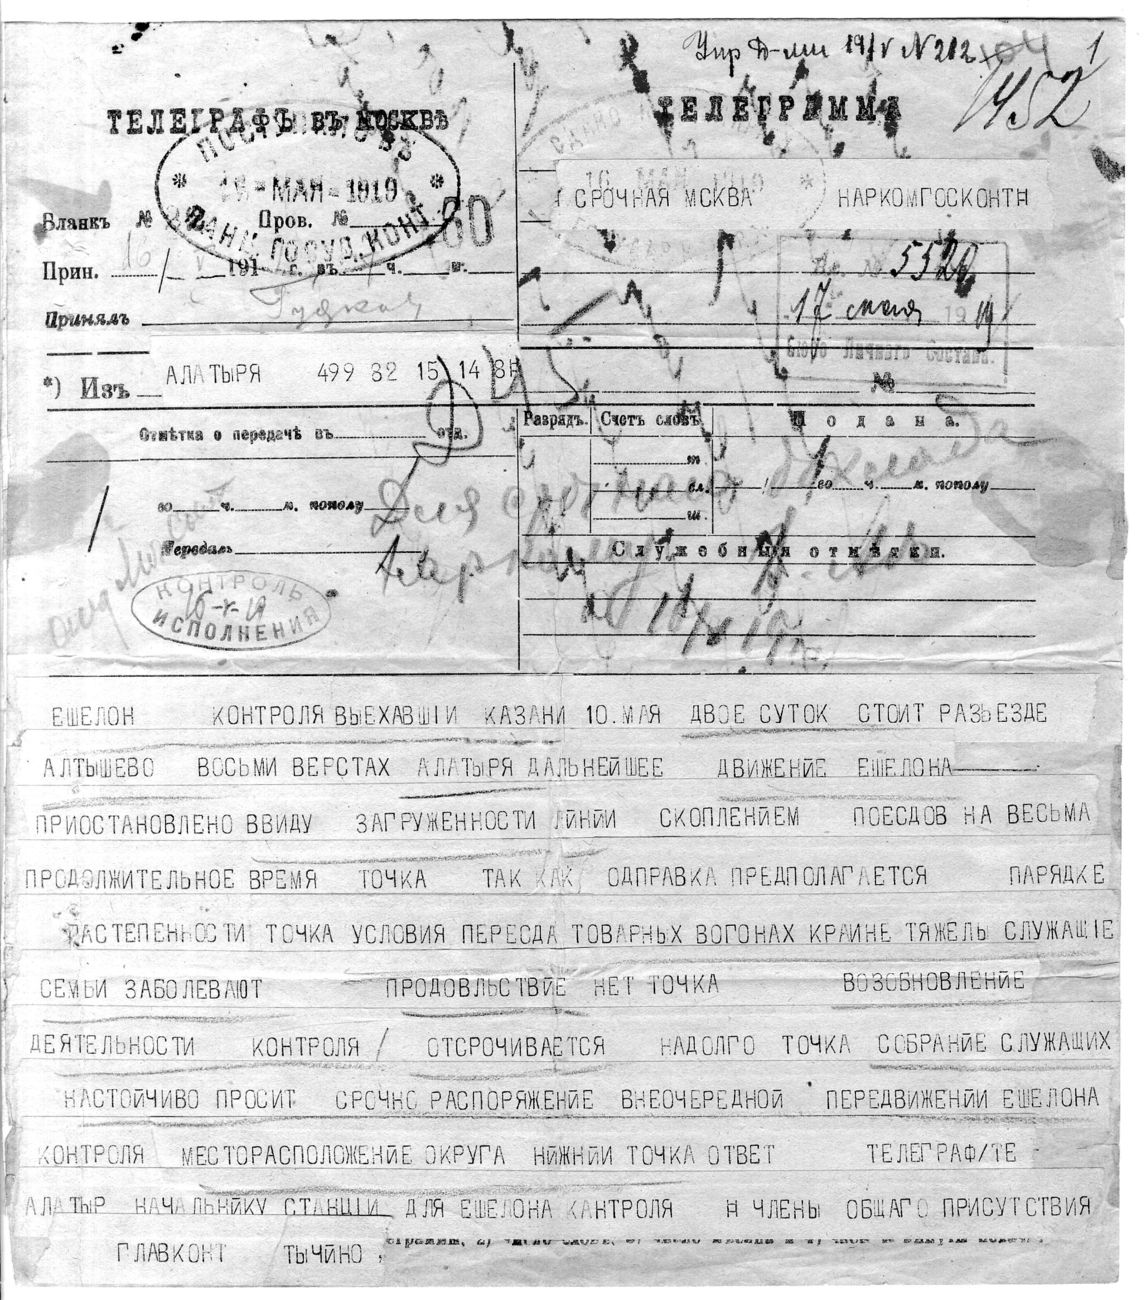 Упр Д-ми 19/V N 212
1
1452
ТЕЛЕГРАФЪ ВЪ МОСКВѢ
ТЕЛЕГРАММА
16 - МАЯ - 1919
СРОЧНАЯ МСКВА НАРКОМГОСКОНТН
Бланкъ № Пров. №
Прин. 16/V 191 г. въ ч. м.
5520
17 мая 1919
Бюро Личного Состава.
Принялъ
№
*) Изъ АЛАТЫРЯ 499 82 15 14 8Н
245
Отмѣтка о передачѣ въ отд.
Разрядъ. Счетъ словъ Подана.
го ч. м. пополу
сл. го ч. м. пополу
Передалъ
Служебныя отмѣтки.
Для срочнаго доклада
Наркому
16/V 19 г.
КОНТРОЛЬ
16-V-19
ИСПОЛНЕНИЯ
ЕШЕЛОН КОНТРОЛЯ ВЫЕХАВШІИ КАЗАНИ 10.МАЯ ДВОЕ СУТОК СТОИТ РАЗЬЕЗДЕ
АЛТЫШЕВО ВОСЬМИ ВЕРСТАХ АЛАТЫРЯ ДАЛЬНЕЙШЕЕ ДВИЖЕНЙЕ ЕШЕЛОНА
ПРИОСТАНОВЛЕНО ВВИДУ ЗАГРУЖЕННОСТИ ЛЙНЙИ СКОПЛЕНЙЕМ ПОЕСДОВ НА ВЕСЬМА
ПРОДОЛЖИТЕЛЬНОЕ ВРЕМЯ ТОЧКА ТАК КАК ОДПРАВКА ПРЕДПОЛАГАЕТСЯ ПАРЯДКЕ
РАСТЕПЕННОСТИ ТОЧКА УСЛОВИЯ ПЕРЕСДА ТОВАРНЬХ ВОГОНАХ КРАИНЕ ТЯЖЕЛЬ СЛУЖАЩІЕ
СЕМЬИ ЗАБОЛЕВАЮТ ПРОДОВЛЬСТВЙЕ НЕТ ТОЧКА ВОЗОБНОВЛЕНЙЕ
ДЕЯТЕЛЬНОСТИ КОНТРОЛЯ / ОТСРОЧИВАЕТСЯ НАДОЛГО ТОЧКА СОБРАНЙЕ СЛУЖАЩИХ
НАСТОЙЧИВО ПРОСИТ СРОЧНО РАСПОРЯЖЕНЙЕ ВНЕОЧЕРЕДНОЙ ПЕРЕДВИЖЕНЙИ ЕШЕЛОНА
КОНТРОЛЯ МЕСТОРАСПОЛОЖЕНЙЕ ОКРУГА НЙЖНЙИ ТОЧКА ОТВЕТ ТЕЛЕГРАФ/ТЕ
АЛАТЫР НАЧАЛЬНЙКУ СТАНЦІИ ДЛЯ ЕШЕЛОНА КАНТРОЛЯ Н ЧЛЕНЫ ОБЩАГО ПРИСУТСТВИЯ
ГЛАВКОНТ ТЫЧЙНО